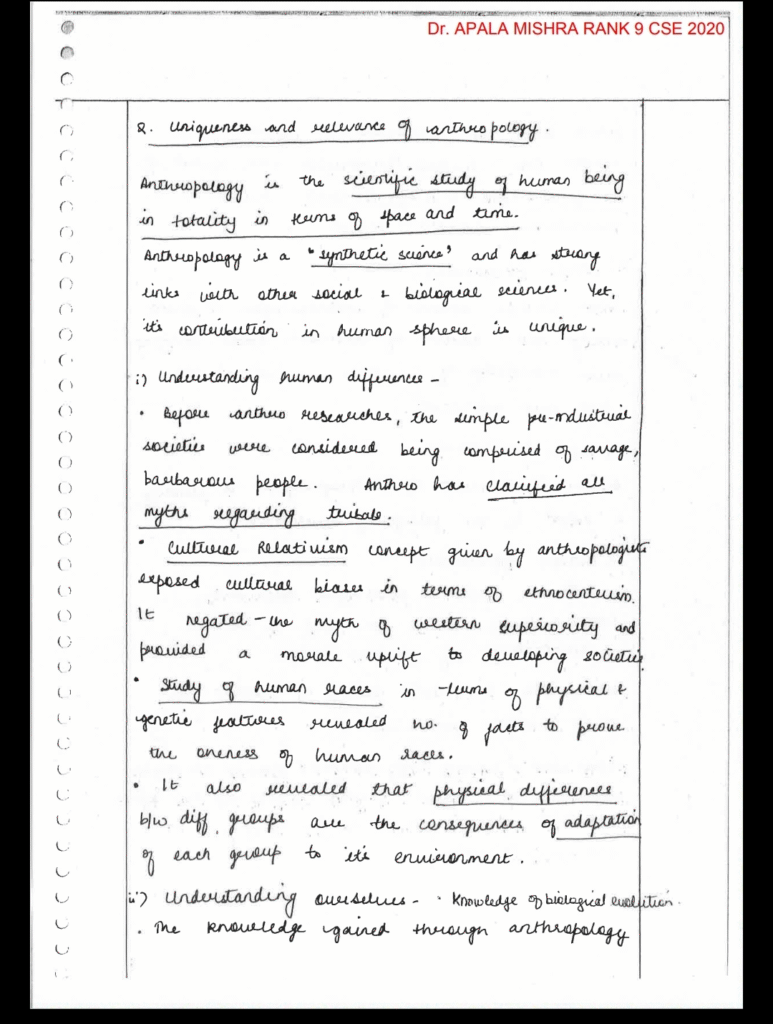 Dr. APALA MISHRA RANK 9 CSE 2020
Q. Uniqueness and relevance of anthropology.
Anthropology is the scientific study of human being
in totality in terms of space and time.
Anthropology is a "synthetic science" and has strong
links with other social & biological sciences. Yet,
it's contribution in human sphere is unique.
i) Understanding human differences -
• Before anthro researches, the simple pre-industrial
societies were considered being comprised of savage,
barbarous people. Anthro has clarified all
myths regarding tribals.
• Cultural Relativism concept given by anthropologists
exposed cultural biases in terms of ethnocenterism.
It negated the myth of western superiority and
provided a morale uplift to developing societies
• Study of human races in terms of physical &
genetic features revealed no. of facts to prove
the oneness of human races.
• It also revealed that physical differences
b/w diff. groups are the consequences of adaptation
of each group to it's environment.
ii) Understanding ourselves - • Knowledge of biological evolution.
• The knowledge gained through anthropology